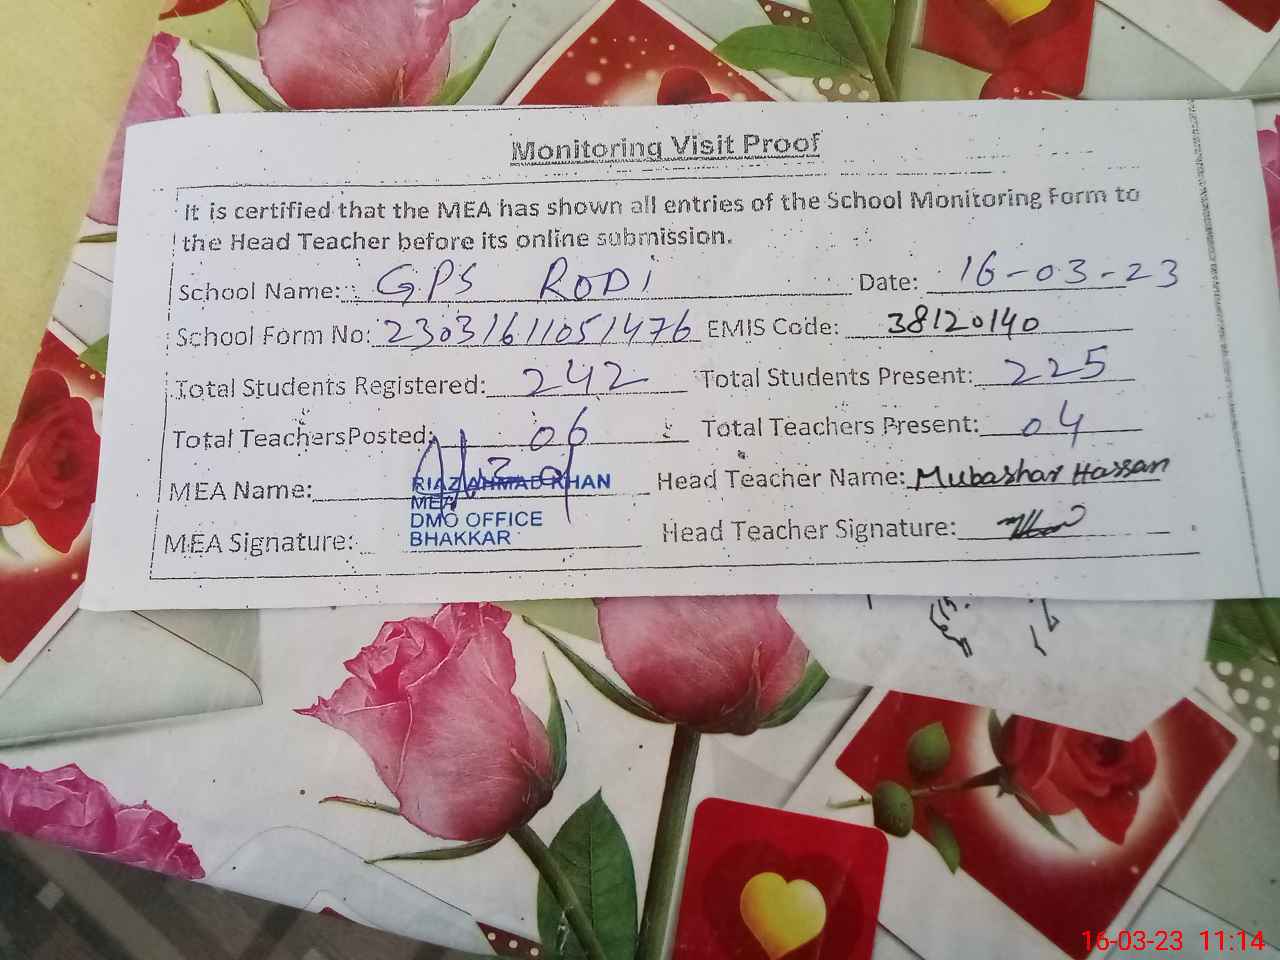 Monitoring Visit Proof
It is certified that the MEA has shown all entries of the School Monitoring Form to
the Head Teacher before its online submission.
School Name: GPS RODI Date: 16-03-23
School Form No: 23031611051476 EMIS Code: 38120140
Total Students Registered: 242 Total Students Present: 225
Total Teachers Posted: 06 Total Teachers Present: 04
MEA Name: RIAZ AHMAD KHAN Head Teacher Name: Mubashar Hassan
MEA
DMO OFFICE
MEA Signature: BHAKKAR Head Teacher Signature:
16-03-23 11:14